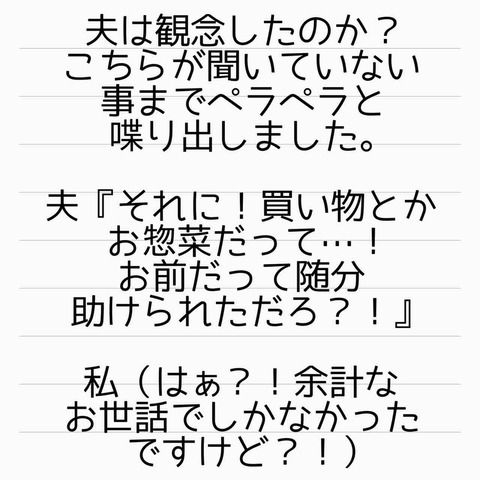 夫は観念したのか？
こちらが聞いていない
事までペラペラと
喋り出しました。
夫『それに！買い物とか
お惣菜だって…！
お前だって随分
助けられただろ？！』
私（はぁ？！余計な
お世話でしかなかった
ですけど？！）